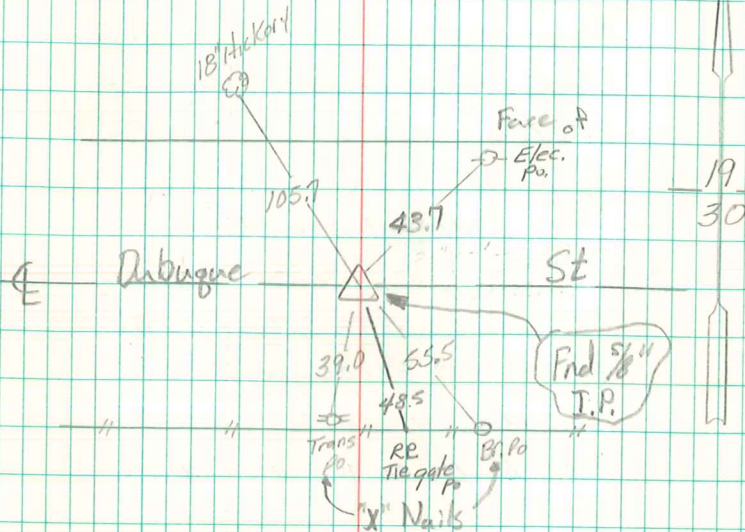 18" Hickory
Face of
Elec.
Po.
105.7
43.7
19
30
℄ Dubuque St
39.0
55.5
48.5
Fnd 5/8"
I.P.
Trans
Po
RR
Tie gate
Po
Br. Po
"X" Nails